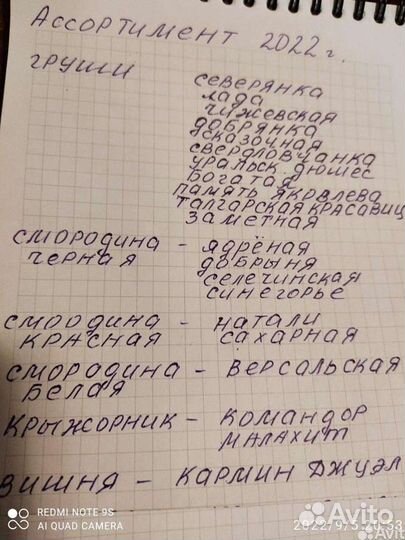 Ассортимент 2022 г.
груши северянка
лада
чижевская
добрянка
сказочная
свердловчанка
уральск. дюшес
богатая
память яковлева
талгарская красавиц
заметная
смородина - ядрёная
черная добрыня
селечинская
синегорье
смородина - натали
красная сахарная
смородина - версальская
белая
крыжорник - командор
малахит
вишня - кармин джуэл
REDMI NOTE 9S
AI QUAD CAMERA
2022/9/5 20:33
Avito
Avito